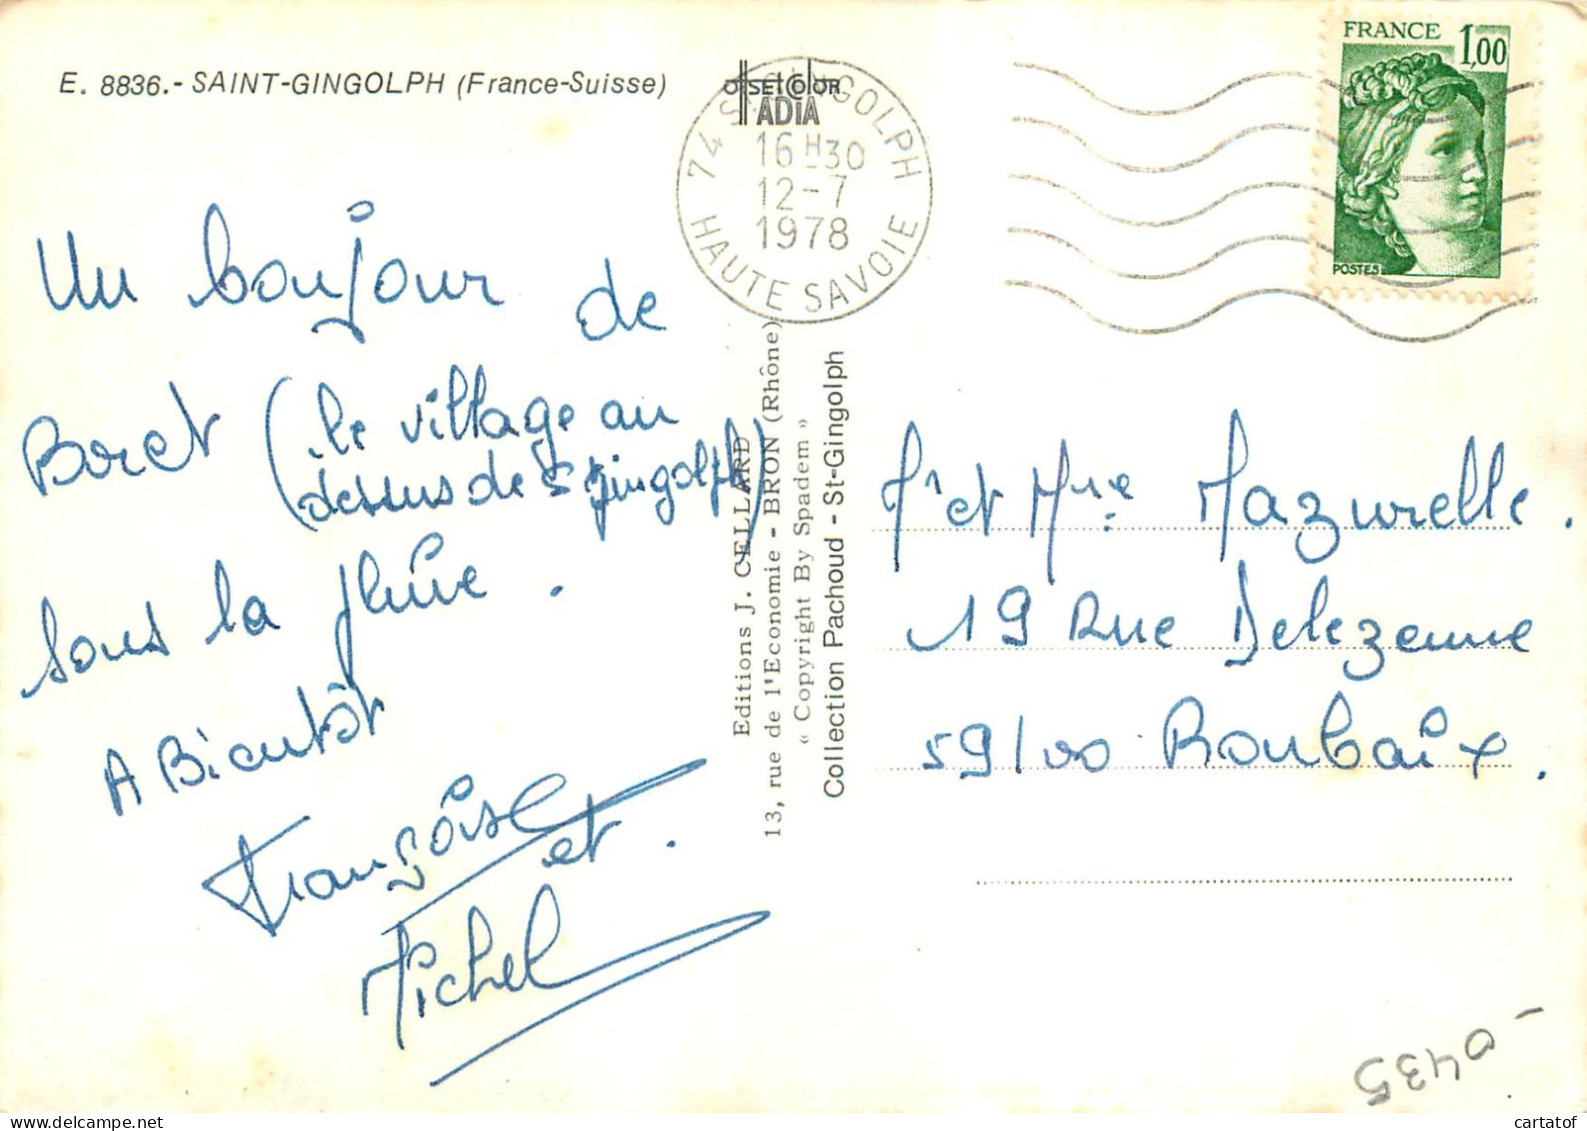 E. 8836.- SAINT-GINGOLPH (France-Suisse)
OFFSET COLOR
ADIA
74 ST GINGOLPH
16 H 30
12-7
1978
HAUTE SAVOIE
FRANCE 1,00
POSTES
Un bonjour de
Boret (le village au
dessus de St Gingolph)
sous la pluie.
A Bientôt
Françoise
et.
Michel
Editions J. CELLARD
13, rue de l'Economie - BRON (Rhône)
« Copyright By Spadem »
Collection Pachoud - St-Gingolph
Mr et Mme Mazurelle.
19 Rue Delezenne
59100 Roubaix.
0435 -
cartatof